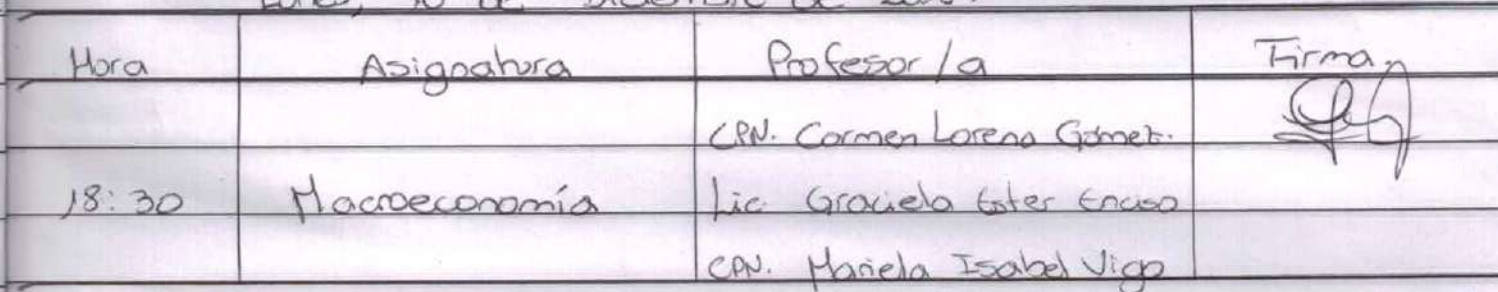 Lunes, 10 de Diciembre de
Hora Asignatura Profesor/a Firma
CPN. Carmen Lorena Gómez.
18:30 Macroeconomía Lic. Graciela Ester Enciso
CPN. Mariela Isabel Vigo